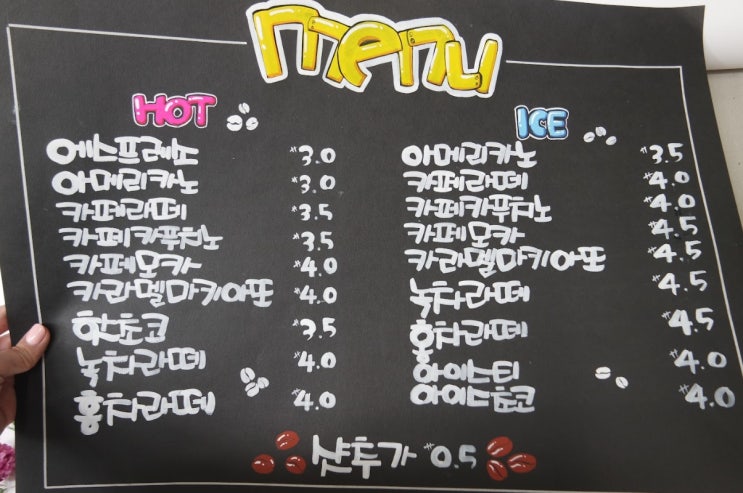 menu
HOT
에스프레소 ₩3.0
아메리카노 ₩3.0
카페라떼 ₩3.5
카페카푸치노 ₩3.5
카페모카 ₩4.0
카라멜마키아또 ₩4.0
핫초코 ₩3.5
녹차라떼 ₩4.0
홍차라떼 ₩4.0
ICE
아메리카노 ₩3.5
카페라떼 ₩4.0
카페카푸치노 ₩4.0
카페모카 ₩4.5
카라멜마키아또 ₩4.5
녹차라떼 ₩4.5
홍차라떼 ₩4.5
아이스티 ₩4.0
아이스초코 ₩4.0
샷투가 ₩0.5